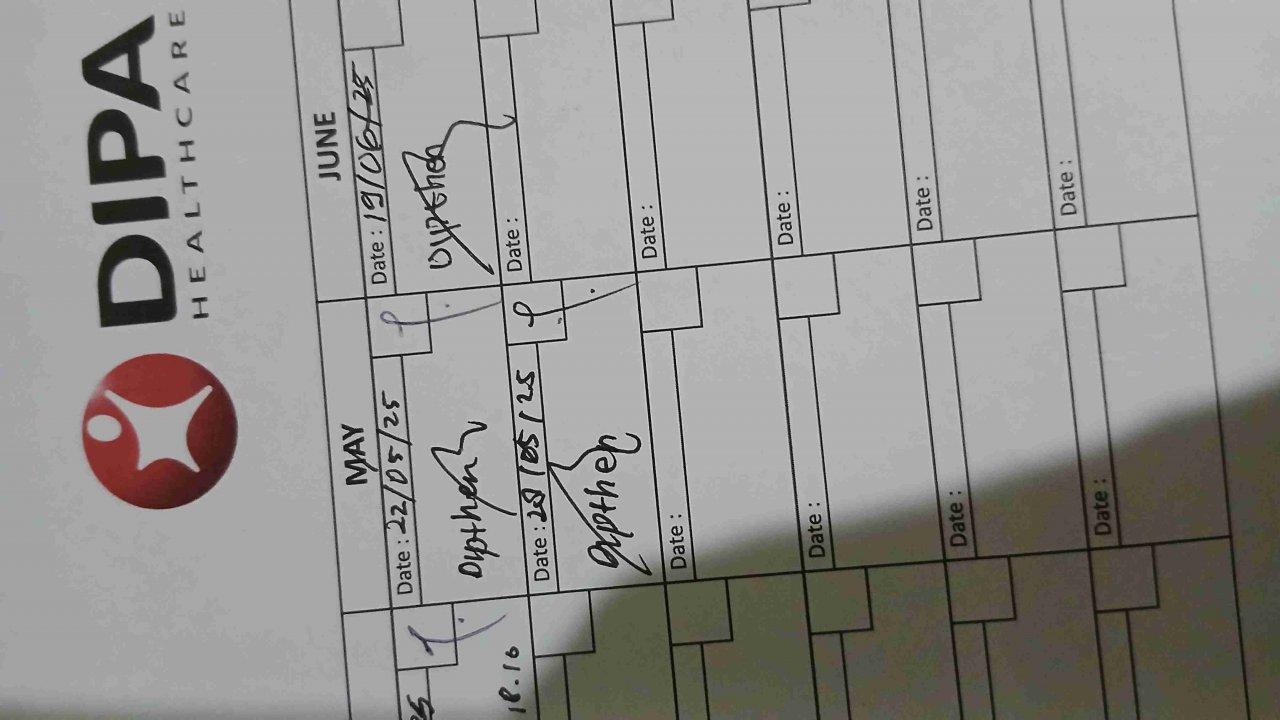 DIPA
HEALTHCARE
MAY
JUNE
Date : 22/05/25
Date : 19/06/25
Dypthen
Dypthen
18.16
Date : 28/05/25
Date :
Dypthen
Date :
Date :
Date :
Date :
Date :
Date :
Date :
Date :